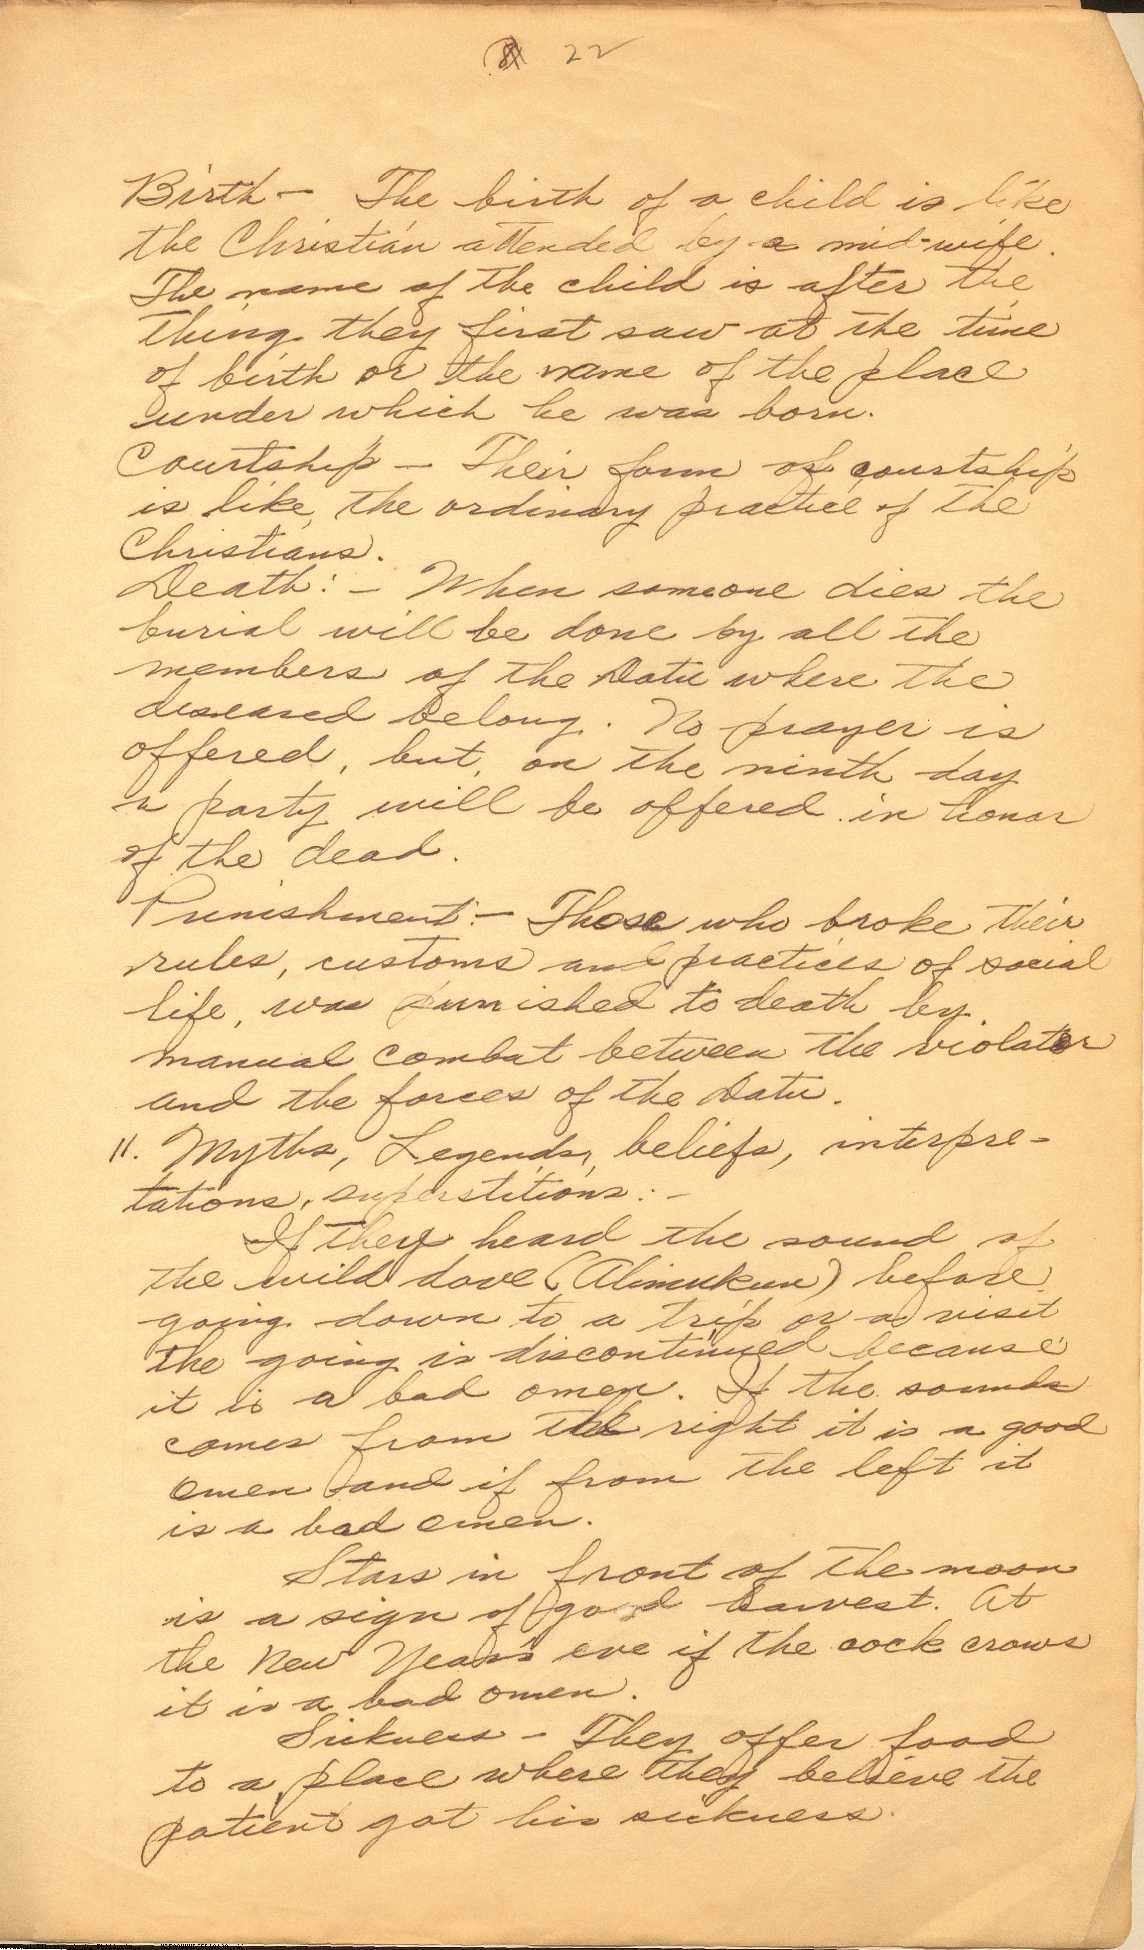 22
Birth - The birth of a child is like
the Christian attended by a mid-wife.
The name of the child is after the
thing they first saw at the time
of birth or the name of the place
under which he was born.
Courtship - Their form of courtship
is like the ordinary practice of the
Christians.
Death: - When someone dies the
burial will be done by all the
members of the Datu where the
deseased belong. No prayer is
offered, but, on the ninth day
a party will be offered in honor
of the dead.
Punishment: - Those who broke their
rules, customs and practices of social
life, was punished to death by
manual combat between the violator
and the forces of the Datu.
11. Myths, Legends, beliefs, interpre-
tations, superstitions: -
If they heard the sound of
the wild dove (Alimukun) before
going down to a trip or a visit
the going is discontinued because
it is a bad omen. If the sounds
comes from the right it is a good
omen and if from the left it
is a bad omen.
Stars in front of the moon
is a sign of good harvest. At
the New Year's eve if the cock crows
it is a bad omen.
Sickness - They offer food
to a place where they believe the
patient got his sickness.